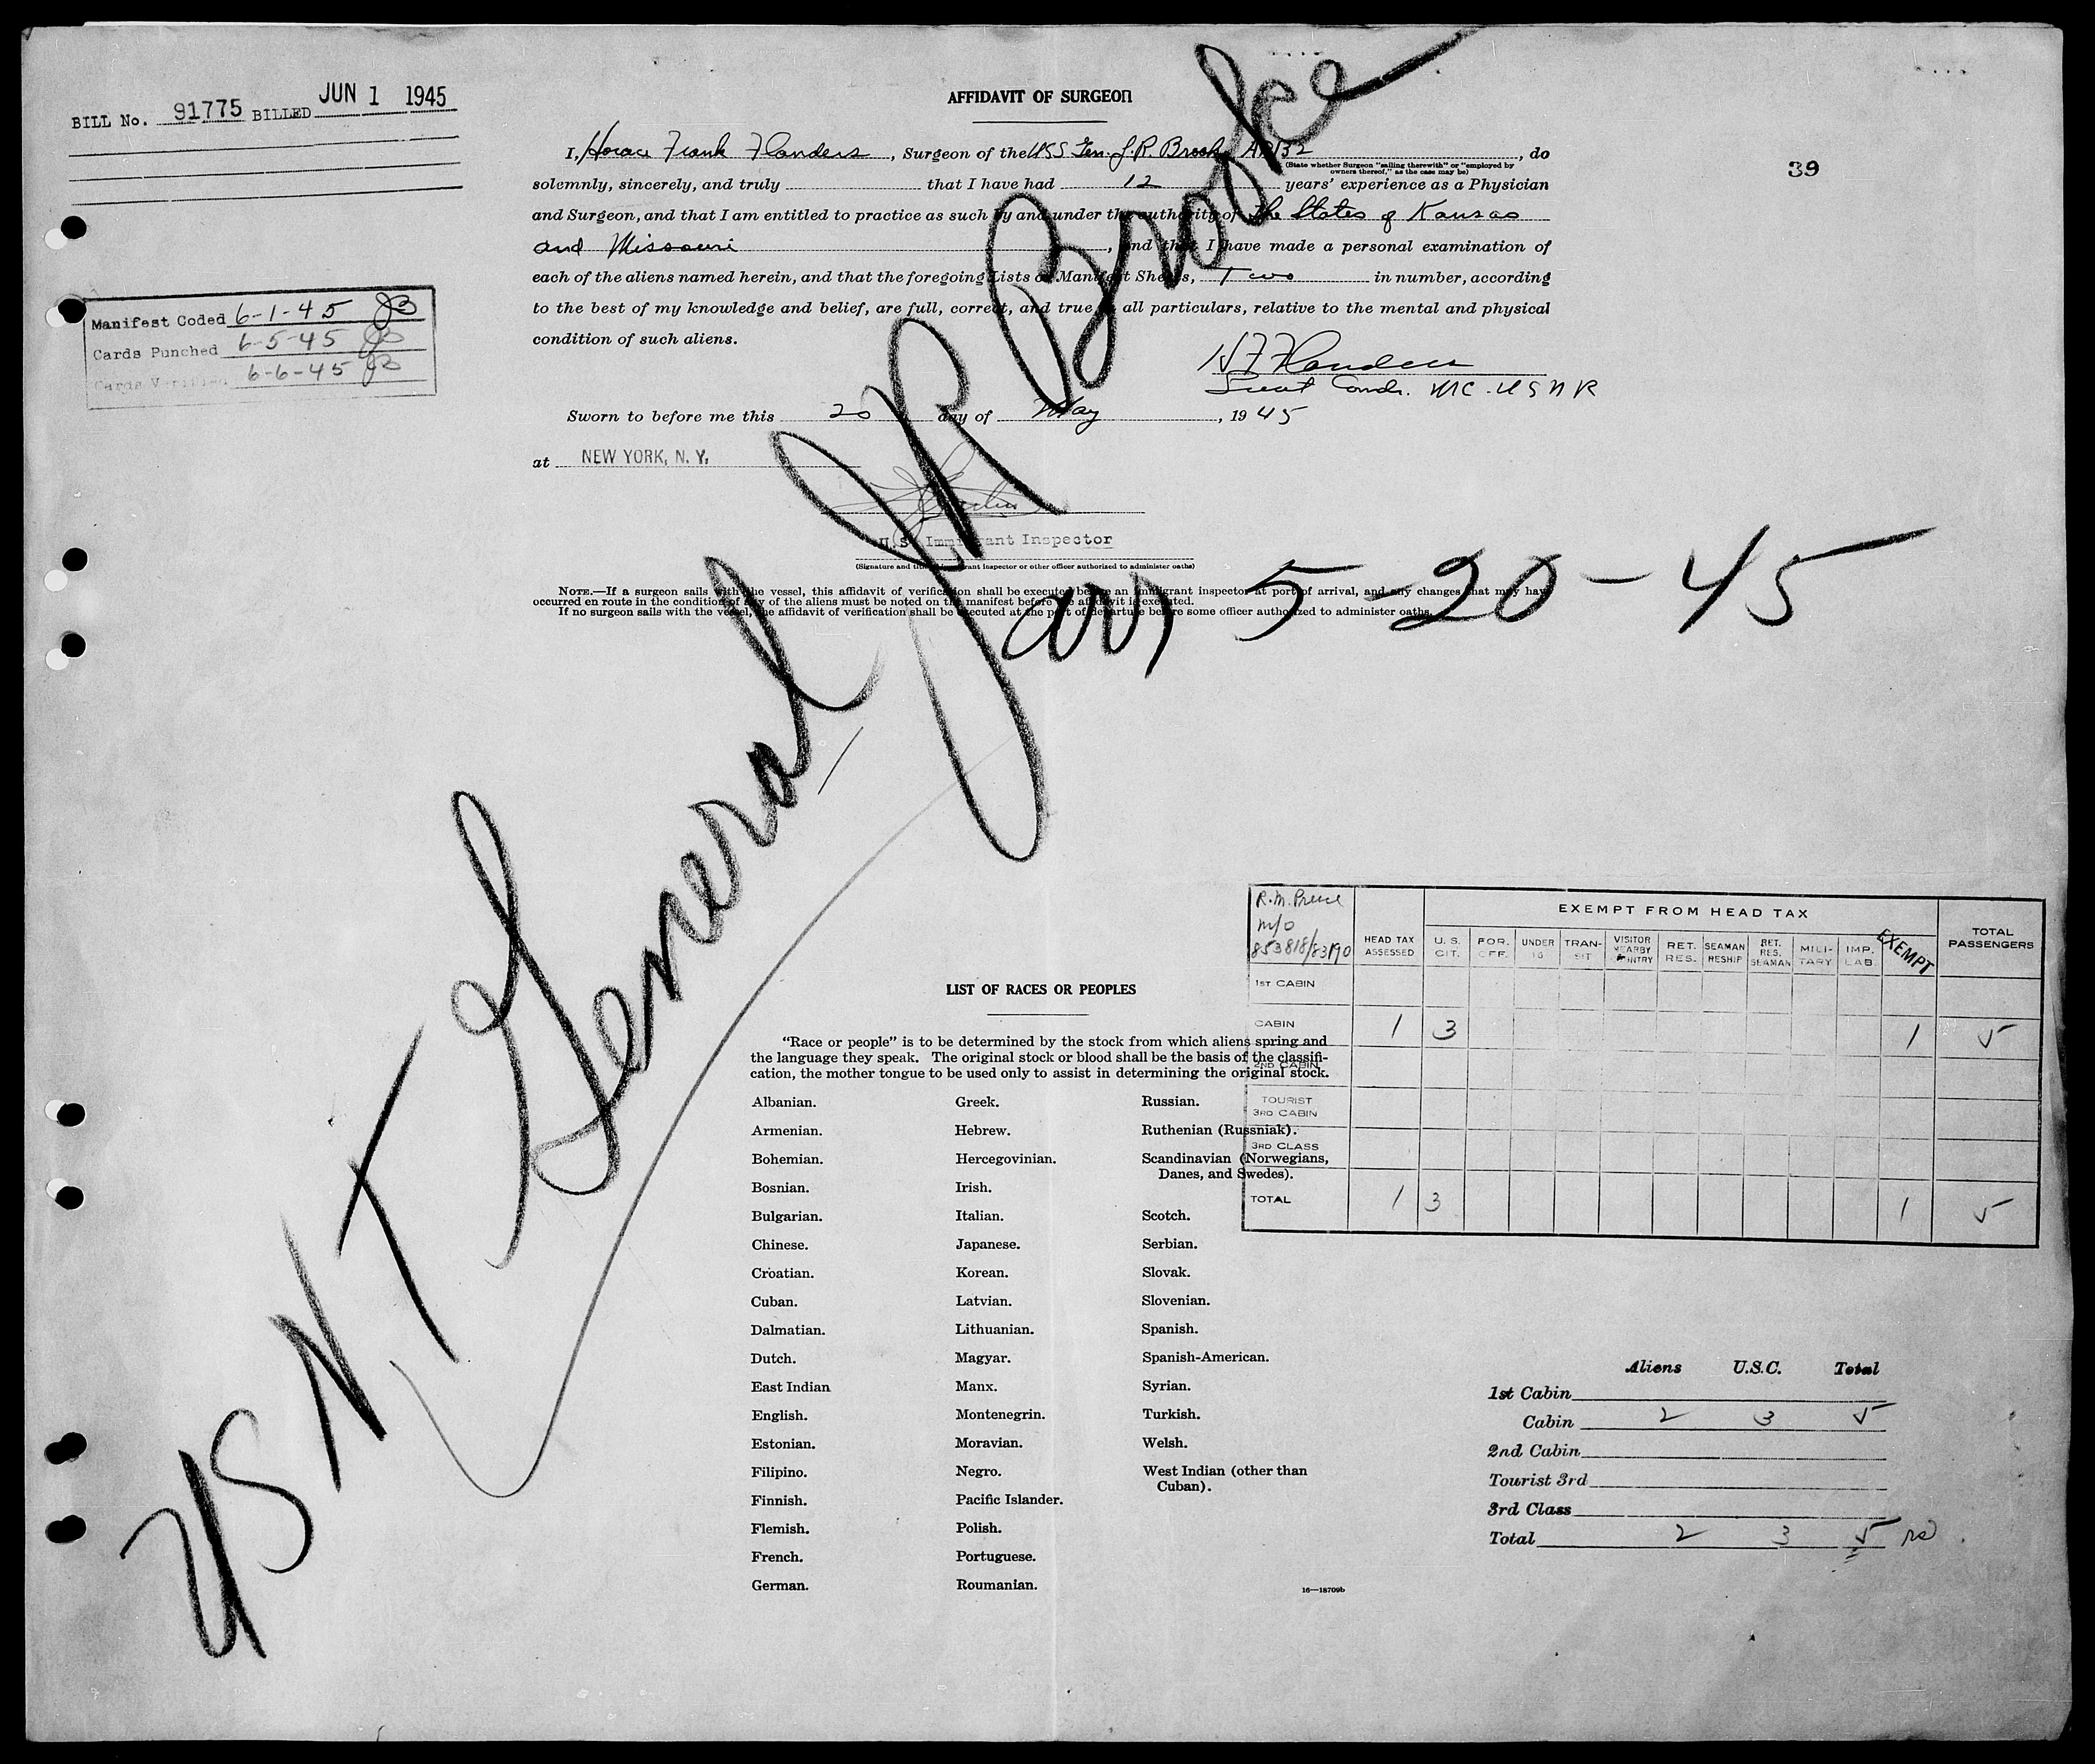 BILL No. 91775 BILLED JUN 1 1945
Manifest Coded 6-1-45 JB
Cards Punched 6-5-45 JB
Cards Verified 6-6-45 JB
39
AFFIDAVIT OF SURGEON
I, Horace Frank Flanders, Surgeon of the USS Gen. J.R. Brooke AP132, do
(State whether Surgeon "sailing therewith" or "employed by
owners thereof," as the case may be)
solemnly, sincerely, and truly that I have had 12 years' experience as a Physician
and Surgeon, and that I am entitled to practice as such by and under the authority of the States of Kansas
and Missouri, and that I have made a personal examination of
each of the aliens named herein, and that the foregoing Lists or Manifest Sheets, Two in number, according
to the best of my knowledge and belief, are full, correct, and true in all particulars, relative to the mental and physical
condition of such aliens.
H F Flanders
Lieut Comdr. MC-USNR
Sworn to before me this 20 day of May, 1945
at NEW YORK, N. Y.
U.S. Immigrant Inspector
(Signature and title of immigrant inspector or other officer authorized to administer oaths)
NOTE.—If a surgeon sails with the vessel, this affidavit of verification shall be executed before an immigrant inspector at port of arrival, and any changes that may have
occurred en route in the condition of any of the aliens must be noted on the manifest before the affidavit is executed.
If no surgeon sails with the vessel, the affidavit of verification shall be executed at the port of departure before some officer authorized to administer oaths.
USNT General JR Brooke
arr, 5-20-45
R.M. Preue
m/o
853818/83190
HEAD TAX ASSESSED
EXEMPT FROM HEAD TAX
U.S. CIT.
FOR. OFF.
UNDER 16
TRAN-SIT
VISITOR NEARBY CNTRY
RET. RES.
SEAMAN RESHIP
RET. RES. SEAMAN
MILI-TARY
IMP. LAB.
EXEMPT
TOTAL PASSENGERS
1ST CABIN
CABIN 1 3 1 5
2ND CABIN
TOURIST 3RD CABIN
3RD CLASS
TOTAL 1 3 1 5
LIST OF RACES OR PEOPLES
"Race or people" is to be determined by the stock from which aliens spring and
the language they speak. The original stock or blood shall be the basis of the classifi-
cation, the mother tongue to be used only to assist in determining the original stock.
Albanian.
Armenian.
Bohemian.
Bosnian.
Bulgarian.
Chinese.
Croatian.
Cuban.
Dalmatian.
Dutch.
East Indian
English.
Estonian.
Filipino.
Finnish.
Flemish.
French.
German.
Greek.
Hebrew.
Hercegovinian.
Irish.
Italian.
Japanese.
Korean.
Latvian.
Lithuanian.
Magyar.
Manx.
Montenegrin.
Moravian.
Negro.
Pacific Islander.
Polish.
Portuguese.
Roumanian.
Russian.
Ruthenian (Russniak).
Scandinavian (Norwegians,
Danes, and Swedes).
Scotch.
Serbian.
Slovak.
Slovenian.
Spanish.
Spanish-American.
Syrian.
Turkish.
Welsh.
West Indian (other than
Cuban).
16—18709b
Aliens U.S.C. Total
1st Cabin
Cabin 2 3 5
2nd Cabin
Tourist 3rd
3rd Class
Total 2 3 5